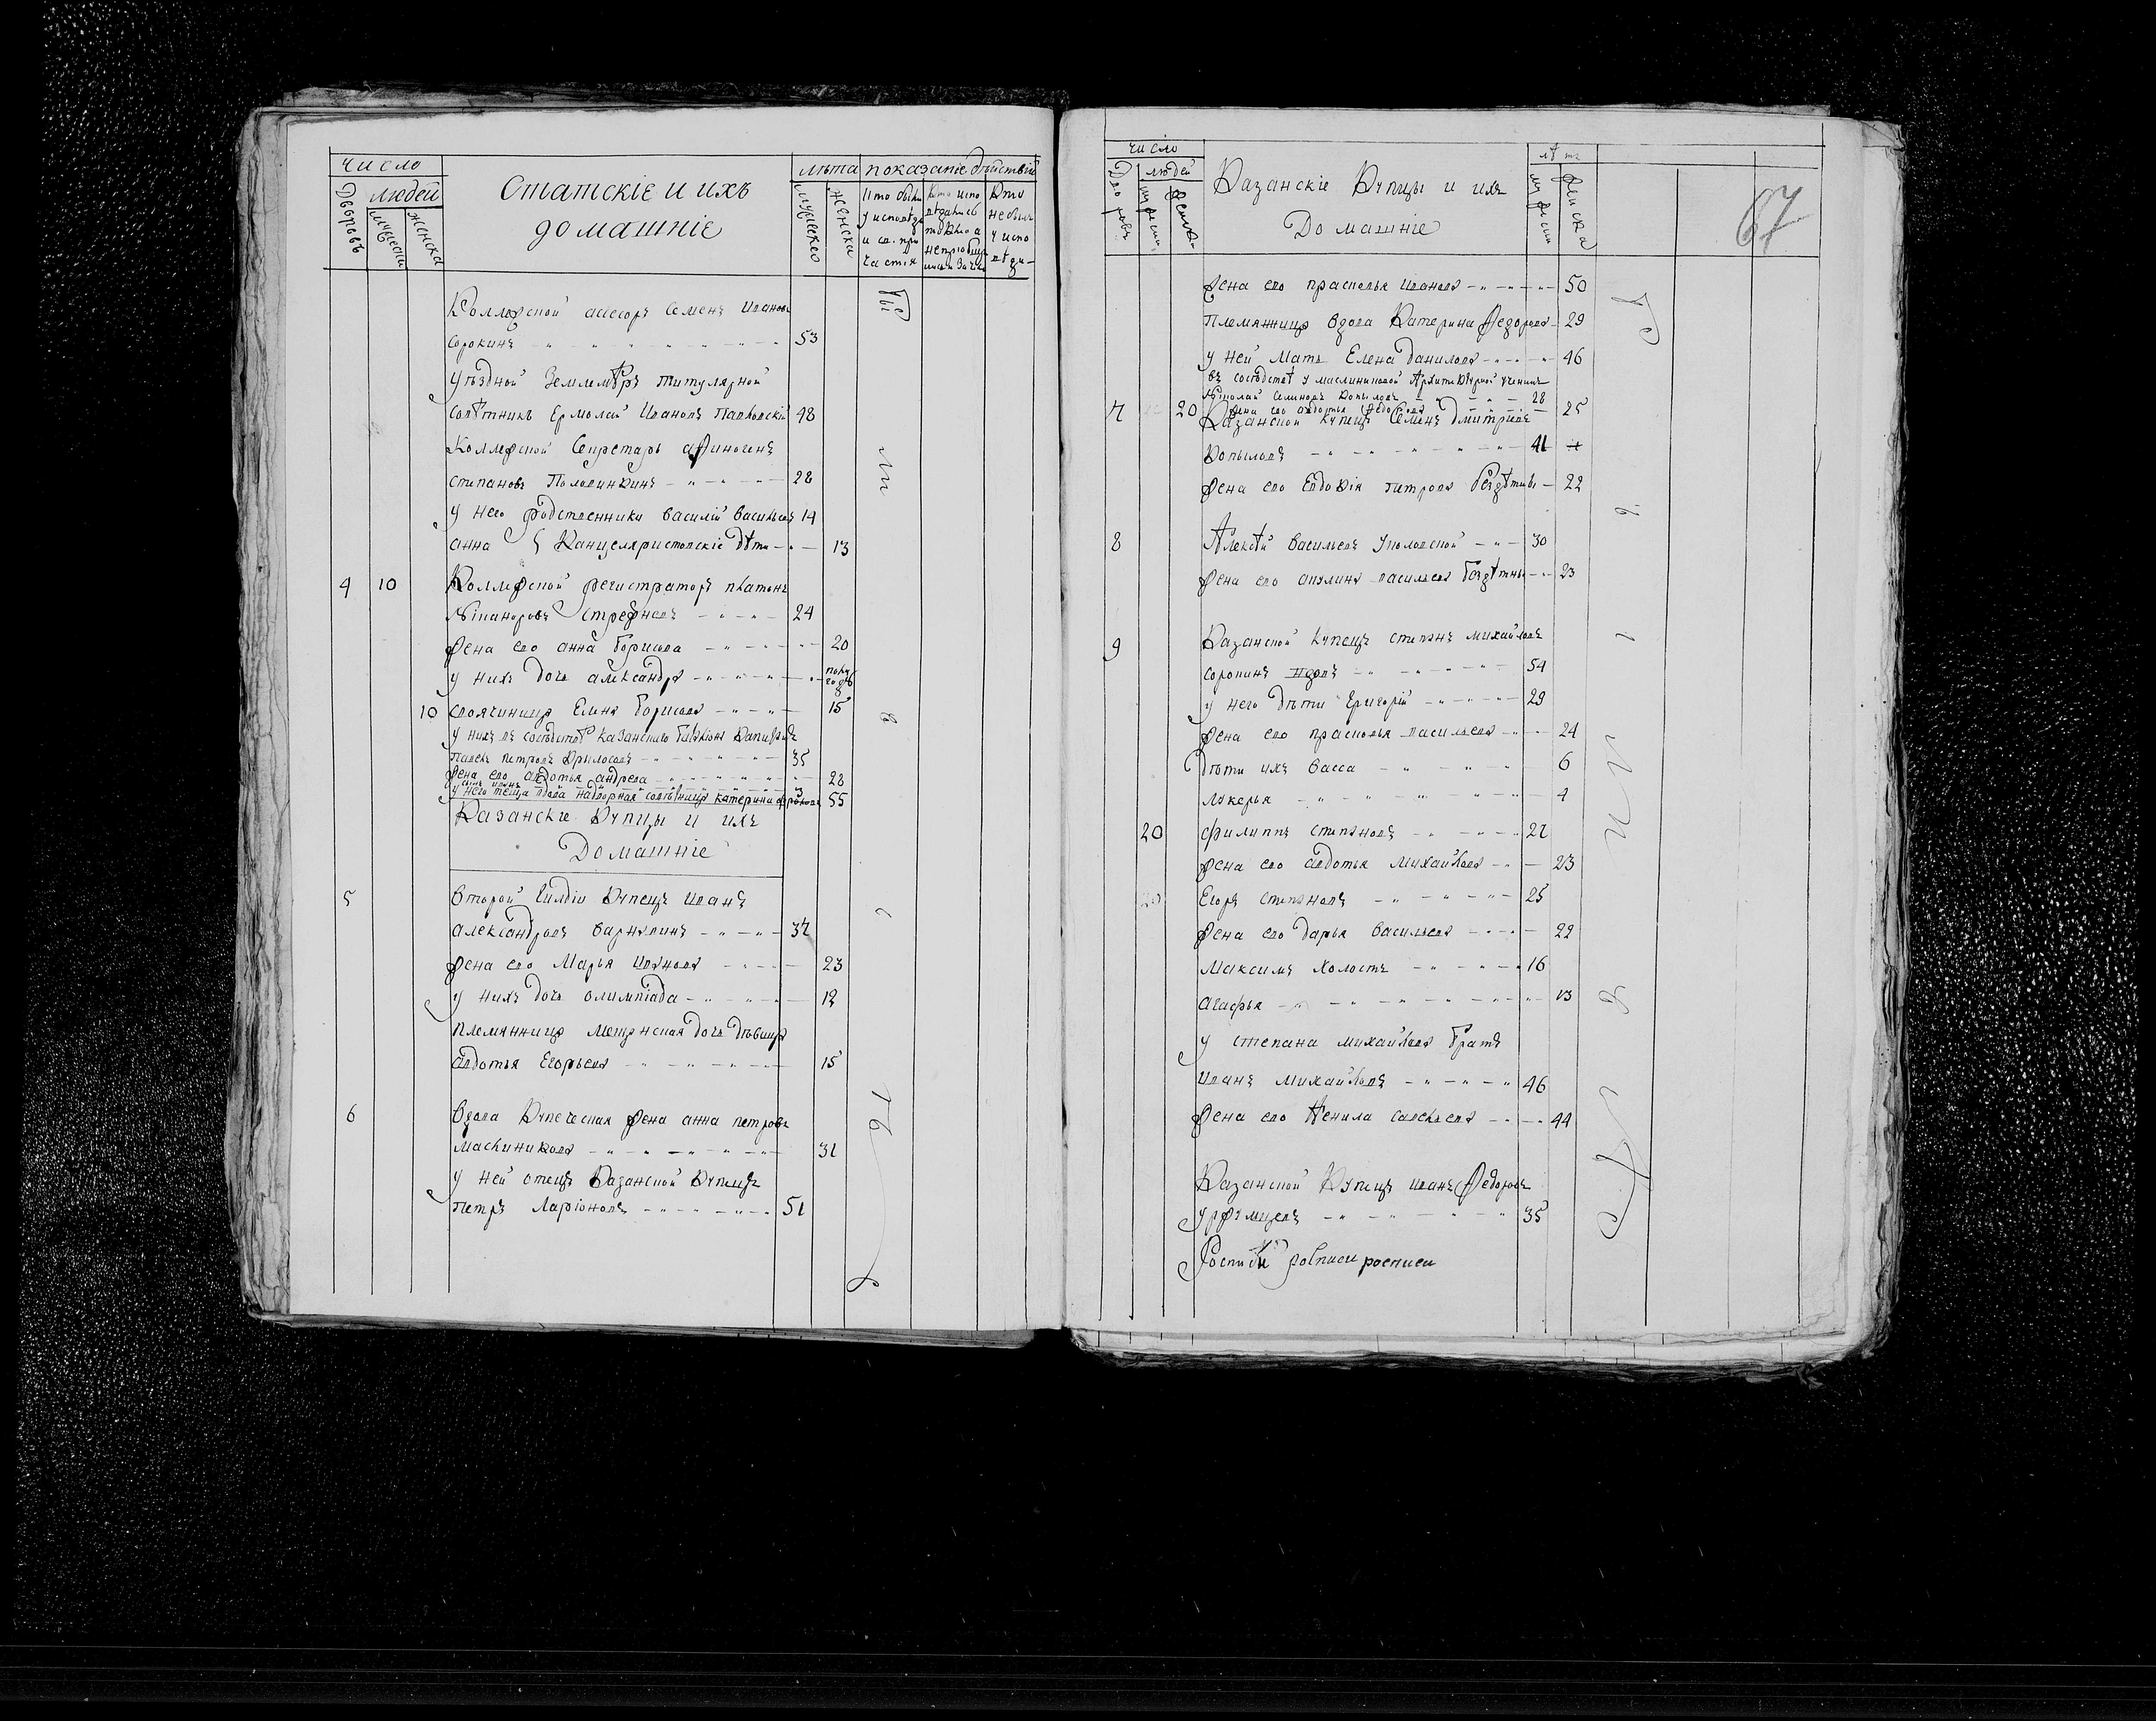 число
Статскіе и ихъ
домашніе
лѣта показаніе дѣйствія
Дворовъ
людей
мужеска
женска
мужеско
женска
Кто были у исповѣди и св. причастія
Кто испо
Кто не были у испо
Коллежской асесоръ Семенъ Иванов
Сорокинъ 53
Уѣздной Землемѣръ титулярной
совѣтникъ Ермолай Ивановъ Павловскій 48
Коллежской Секретарь афиногенъ
степановъ 28
у него родственники василій васильев 14
анна Канцеляристовскіе дѣти 13
4 10 Коллежской регистраторъ платонъ
Никаноровъ Стрежневъ 24
жена ево анна борисова 20
у нихъ дочь александра полугодъ
10 своячиница Елена борисова 15
у нихъ въ сосѣдствѣ казанскаго
Павелъ петровъ Крылосовъ 35
жена ево авдотья андрева 28
у него теща вдова надворная совѣтница катерина 55
Казанскіе Купцы и ихъ
Домашніе
5 второй гилдіи Купецъ иванъ
александровъ 37
жена ево Марья иванова 23
у нихъ дочь олимпіада 12
племянница мещанская дочь дѣвица
авдотья Егорьева 15
6 вдова Купеческая жена анна петрова
масленикова 31
у ней отецъ Казанской Купецъ
петръ Ларіоновъ 51
были у сего
число
Казанскіе Купцы и ихъ
Домашніе
лѣта
Дворовъ
людей
67
жена ево прасковья иванова 50
племянница вдова Катерина Федорова 29
у ней мать Елена данилова 46
въ сосѣдствѣ у маслиниковой Архитектурной ученикъ
Николай Семеновъ Копыловъ 28
жена ево авдотья Федорова 25
7 20 Казанской купецъ Семенъ дмитріевъ
Копыловъ 41
жена ево Евдокія петрова бездѣтны 22
8 Алексѣй васильевъ 30
жена ево акулина васильева бездѣтны 23
9 Казанской купецъ степанъ михайловъ
сорокинъ вдовъ 54
у него дѣти Григорій 29
жена ево прасковья васильева 24
дѣти ихъ васса 6
лукерья 4
20 филиппъ степановъ 27
жена ево авдотья михайлова 23
Егоръ степановъ 25
жена ево дарья васильева 22
максимъ холостъ 16
агафья 13
у степана михайлова братъ
иванъ михайловъ 46
жена ево Ненила савельева 44
Казанской Купецъ иванъ Федоровъ
Уржумцевъ 35
росписи росписи